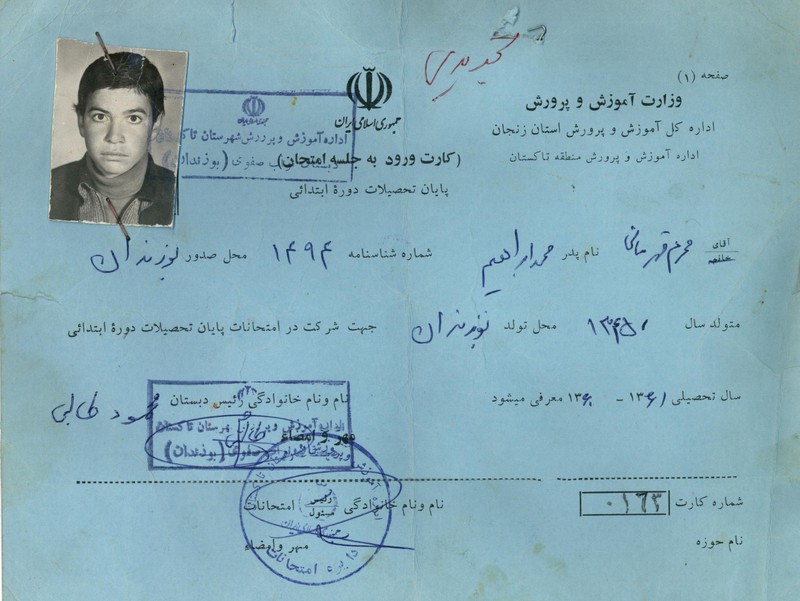 صفحه (۱)
وزارت آموزش و پرورش
اداره کل آموزش و پرورش استان زنجان
اداره آموزش و پرورش منطقه تاکستان
جمهوری اسلامی ایران
(کارت ورود به جلسه امتحان)
پایان تحصیلات دورهٔ ابتدائی
اداره آموزش و پرورش شهرستان تاکستان
صفوی (بوزندان)
آقای محرم قهرمانی نام پدر محمد ابراهیم شماره شناسنامه ۱۴۹۴ محل صدور بوزندان
متولد سال محل تولد بوزندان جهت شرکت در امتحانات پایان تحصیلات دورهٔ ابتدائی
سال تحصیلی ۱۳۶۱ - ۱۳۶۰ معرفی میشود
نام ونام خانوادگی رئیس دبستان محمود طالبی
مهر و امضاء
اداره آموزش و پرورش شهرستان تاکستان
صفوی (بوزندان)
شماره کارت ۰۱۶۳
نام ونام خانوادگی رئیس مسئول امتحانات
نام حوزه
مهر و امضاء
دایره امتحانات